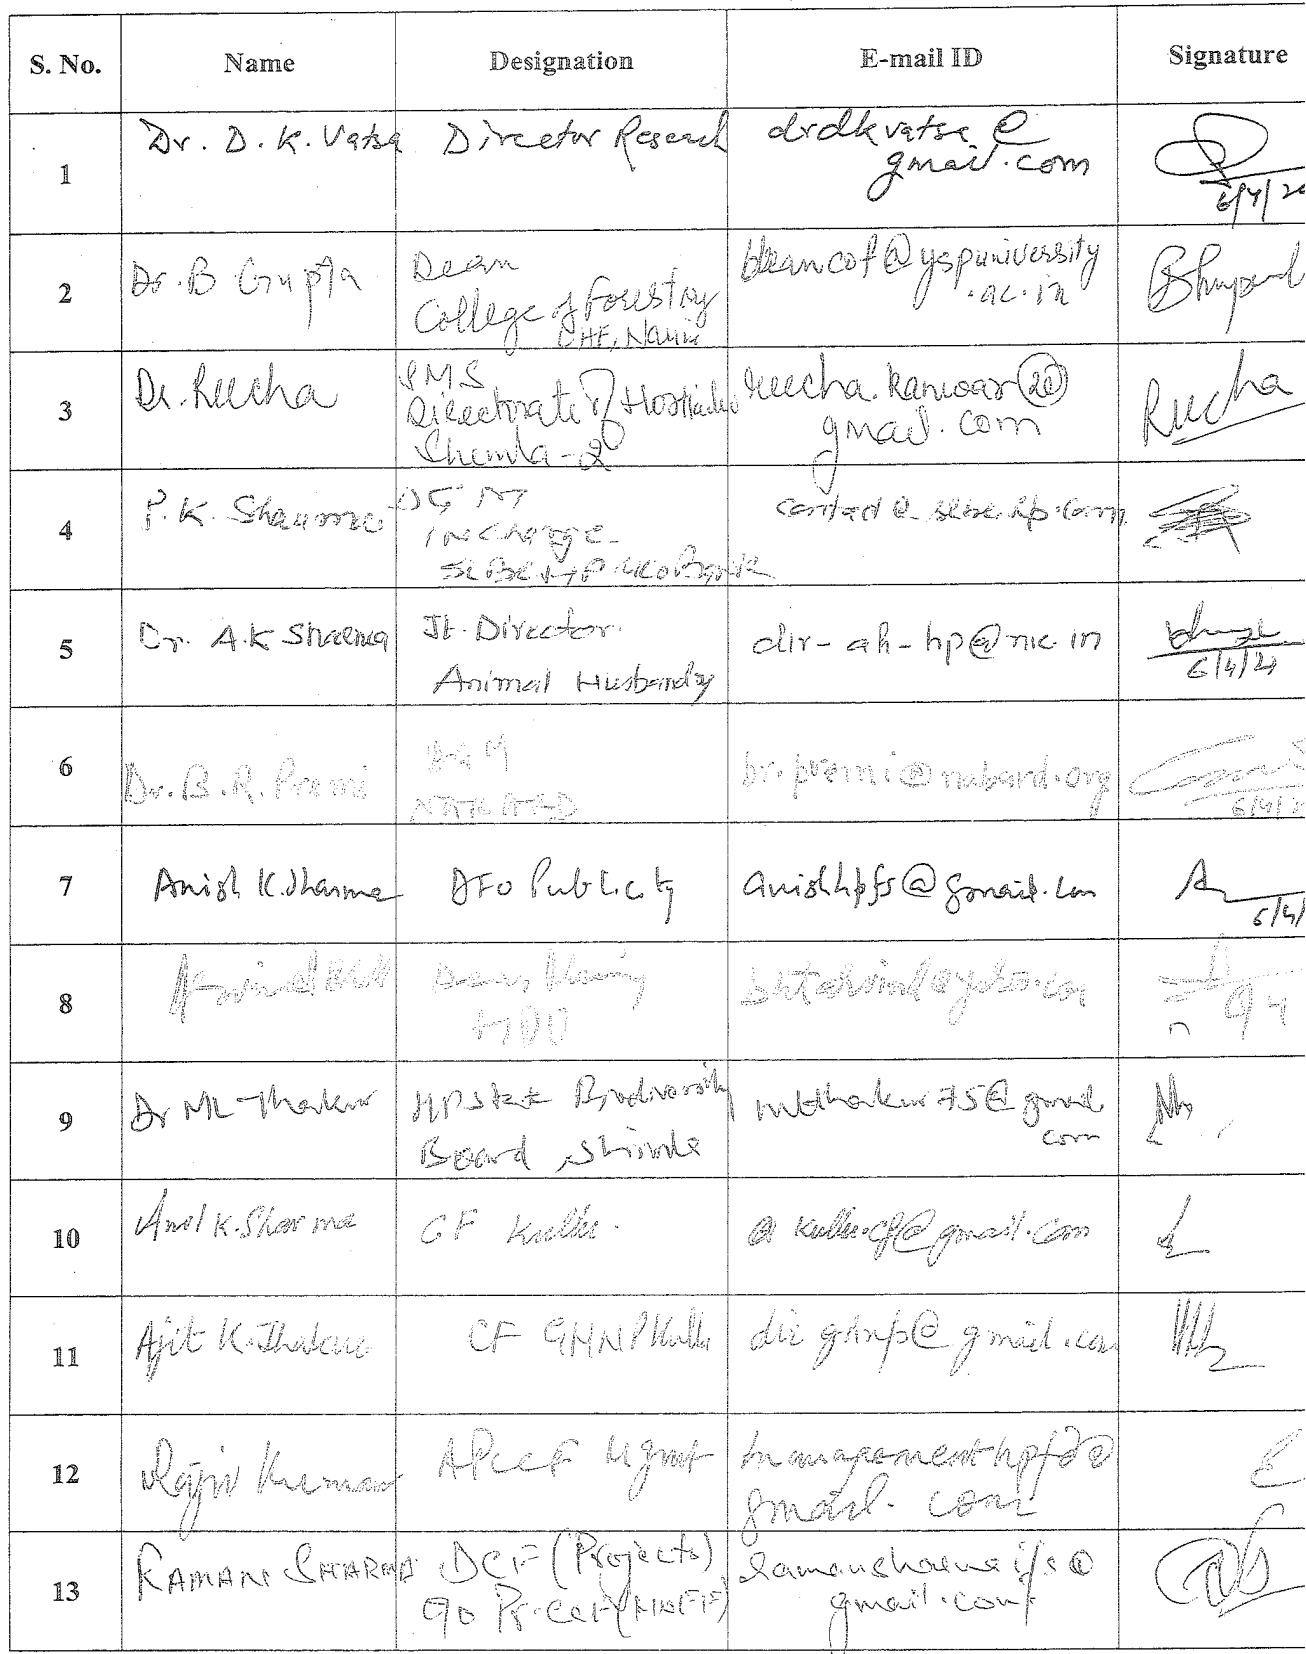 S. No. Name Designation E-mail ID Signature
1 Dr. D. K. Vatsa Director Research drdkvatsa@
gmail.com
6/4/2
2 Dr. B Gupta Dean
College of Forestry
UHF, Nauni
deancof@yspuniversity
.ac.in
Bhupend
3 Dr. Reecha SMS
Directorate of Horticulture
Shimla-2
reecha.kanwar20@
gmail.com
Reecha
4 P. K. Sharma
Incharge
SLBC HP UCO Bank
contact@slbchp.com
5 Dr. A.K Sharma Jt. Director
Animal Husbandry
dir-ah-hp@nic.in
6/4/21
6 Dr. B. R. Premi DGM
NABARD
br.premi@nabard.org
6/4/2
7 Anish K. Sharma DFO Publicity anishhpfs@gmail.com
6/4/
8 Arvind Bhatt
9 Dr ML Thakur HP State Biodiversity
Board, Shimla
mlthakur75@gmail.
com
10 Anil K. Sharma CF Kullu. kullu.cf@gmail.com
11 Ajit K. Thakur CF GHNP Kullu dirghnp@gmail.com
12 Rajiv Kumar APCCF Mgmt managementhpfd@
gmail.com
13 RAMAN SHARMA DCF (Projects)
ramansharmaifs@
gmail.com